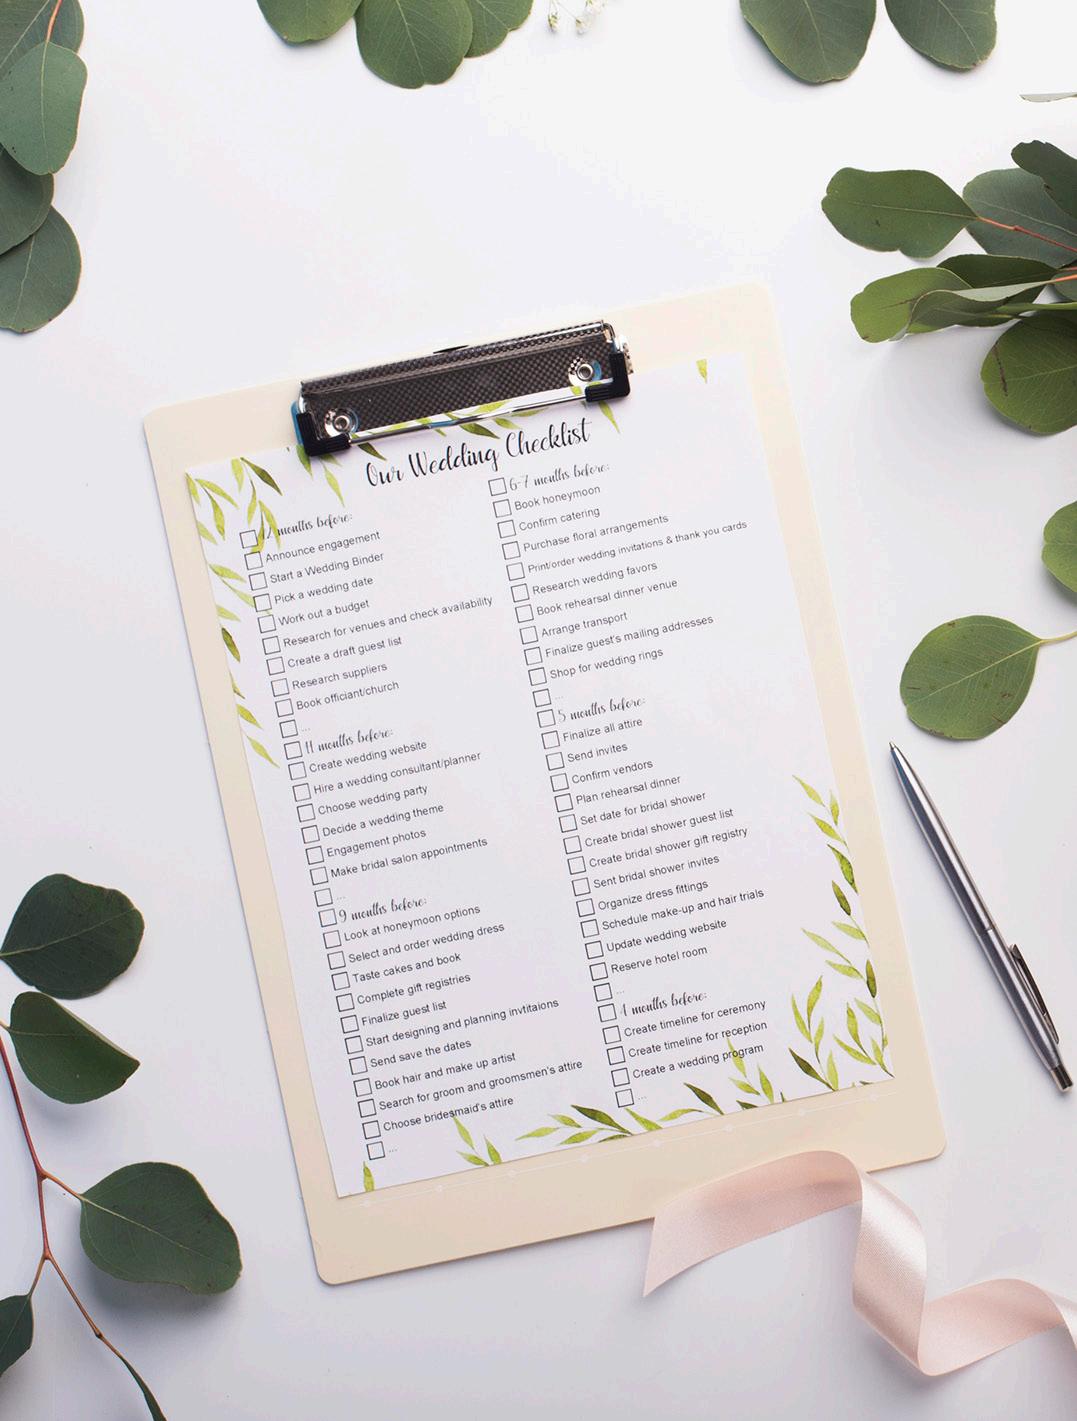 Our Wedding Checklist
months before:
Announce engagement
Start a Wedding Binder
Pick a wedding date
Work out a budget
Research for venues and check availability
Create a draft guest list
Research suppliers
Book officiant/church
...
11 months before:
Create wedding website
Hire a wedding consultant/planner
Choose wedding party
Decide a wedding theme
Engagement photos
Make bridal salon appointments
...
9 months before:
Look at honeymoon options
Select and order wedding dress
Taste cakes and book
Complete gift registries
Finalize guest list
Start designing and planning invitaions
Send save the dates
Book hair and make up artist
Search for groom and groomsmen's attire
Choose bridesmaid's attire
...
6-7 months before:
Book honeymoon
Confirm catering
Purchase floral arrangements
Print/order wedding invitations & thank you cards
Research wedding favors
Book rehearsal dinner venue
Arrange transport
Finalize guest's mailing addresses
Shop for wedding rings
...
5 months before:
Finalize all attire
Send invites
Confirm vendors
Plan rehearsal dinner
Set date for bridal shower
Create bridal shower guest list
Create bridal shower gift registry
Sent bridal shower invites
Organize dress fittings
Schedule make-up and hair trials
Update wedding website
Reserve hotel room
...
4 months before:
Create timeline for ceremony
Create timeline for reception
Create a wedding program
...